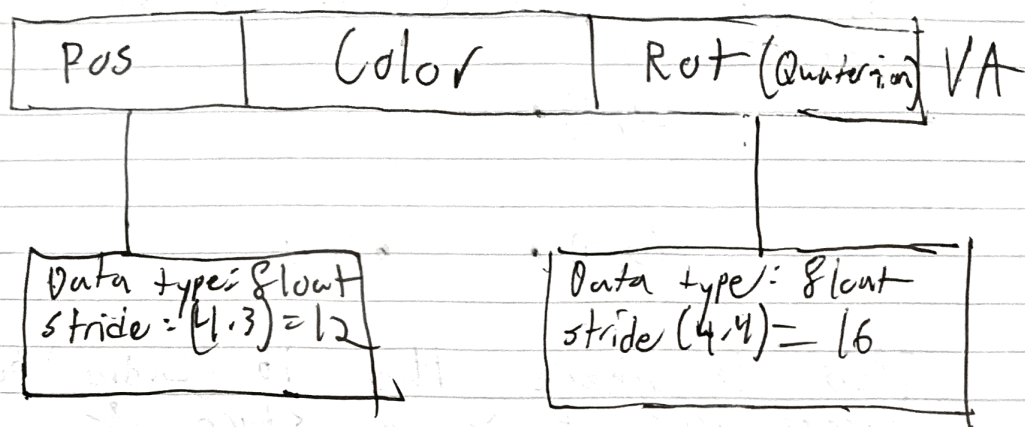 Pos Color Rot (Quaternion) VA
Data type: float
stride = (4.3) = 12
Data type: float
stride (4.4) = 16